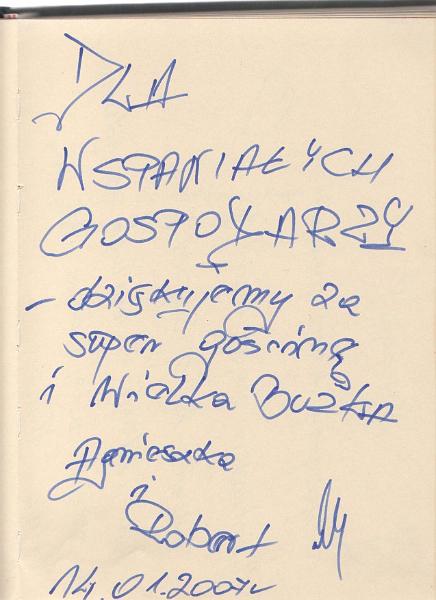 DLA
WSPANIAŁYCH
GOSPODARZY
- dziękujemy za
super gościnę
i Wielka BUŹKA
Agnieszka
i Robert
14.01.2007r